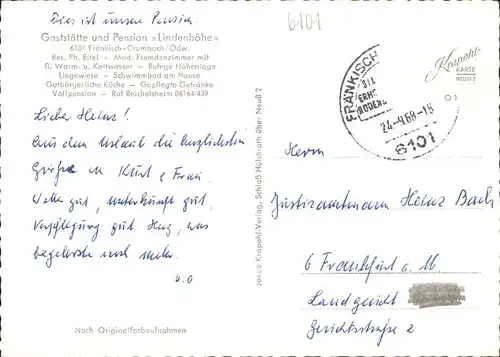 6101
Dies ist unsere Pension.
Gaststätte und Pension »Lindenhöhe«
6101 Fränkisch-Crumbach/Odw.
Bes. Ph. Eitel - Mod. Fremdenzimmer mit
fl. Warm- u. Kaltwasser - Ruhige Höhenlage
Liegewiese - Schwimmbad am Hause
Gutbürgerliche Küche - Gepflegte Getränke
Vollpension - Ruf Reichelsheim 06164/439
Lieber Heinz!
Aus dem Urlaub die herzlichsten
Grüße an Frau.
Wetter gut, Unterkunft gut,
Verpflegung gut. Herz, was
begehrst noch mehr.
Nach Originalfarbaufnahmen
Jakob Krapohl-Verlag, Schloß Hülchrath über Neuß 2
FRÄNKISCH
24-4.68-18
6101
Krapohl-
KARTE
01
Herrn
Justizamtmann Heinz Bach
6 Frankfurt a. M.
Landgericht
Gerichtsstraße 2